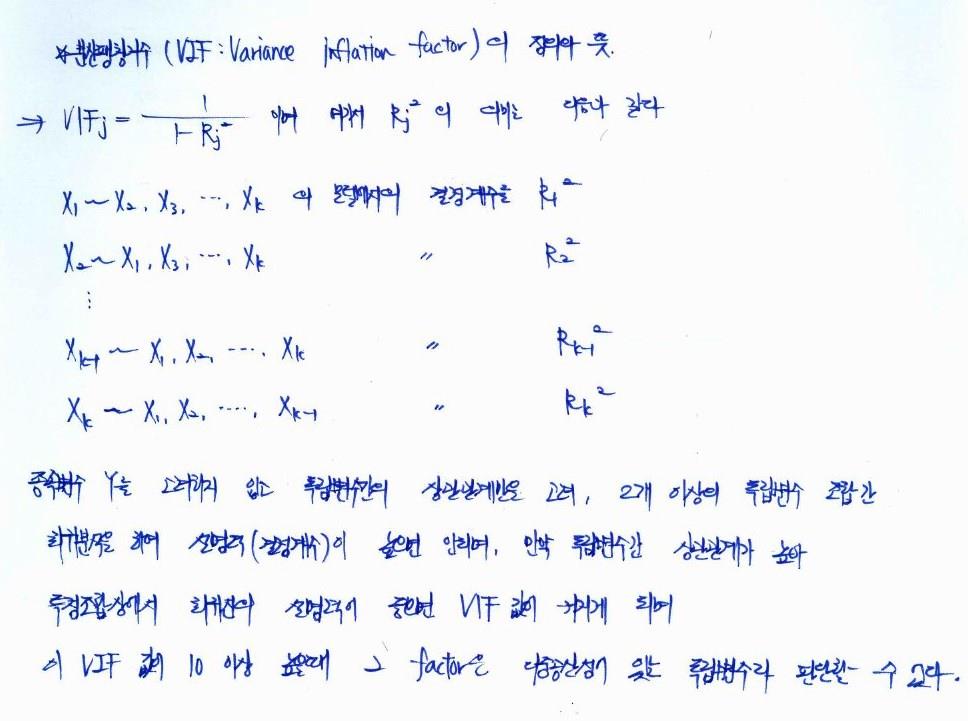 * 분산팽창지수 (VIF : Variance Inflation factor) 의 정의와 뜻.
→ VIFj = 1 / (1 - Rj²) 이며 여기서 Rj² 의 의미는 다음과 같다
X1 ~ X2, X3, ..., Xk 의 모델에서의 결정계수를 R1²
X2 ~ X1, X3, ..., Xk 〃 R2²
⋮
Xk-1 ~ X1, X2, ..., Xk 〃 Rk-1²
Xk ~ X1, X2, ..., Xk-1 〃 Rk²
종속변수 Y를 고려하지 않고 독립변수간의 상관관계만을 고려, 2개 이상의 독립변수 조합간
회귀분석을 하여 설명력(결정계수)이 높으면 안되며, 만약 독립변수간 상관관계가 높아
특정조합상에서 회귀식의 설명력이 높으면 VIF 값이 커지게 되며
이 VIF 값이 10 이상 높을때 그 factor은 다중공선성이 있는 독립변수라 판단할 수 있다.